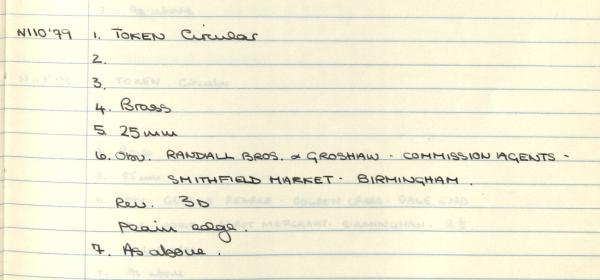 N110'79 1. TOKEN Circular
2.
3.
4. Brass
5. 25mm
6. Obv. RANDALL BROS. & GROSHAW · COMMISSION AGENTS ·
SMITHFIELD MARKET · BIRMINGHAM.
Rev. 3D
Plain edge.
7. As above.